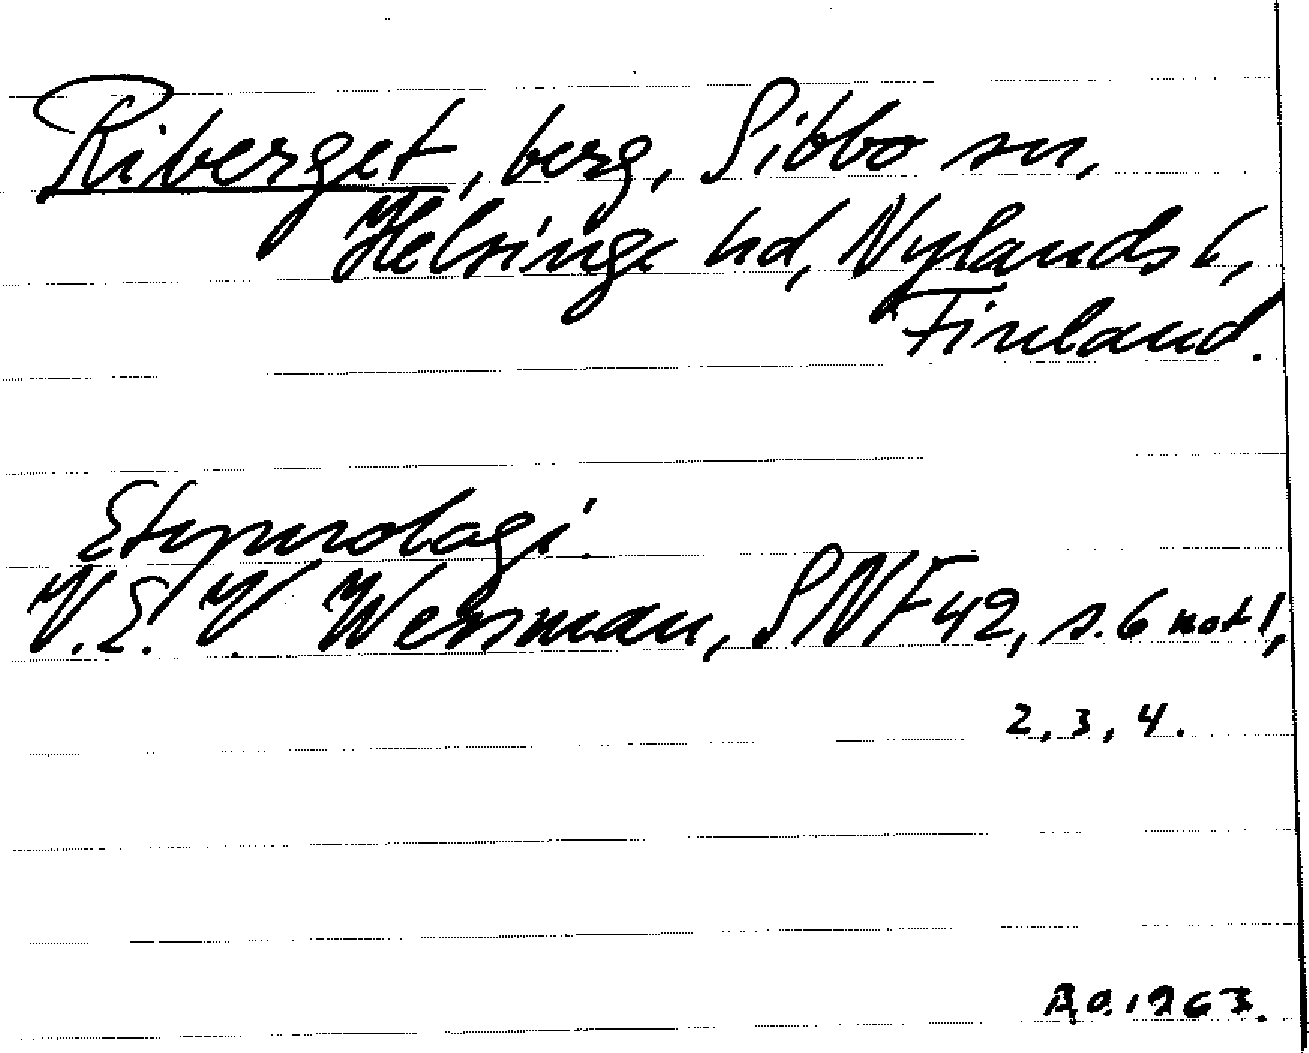 Riberget, berg, Sibbo sn,
Helsinge hd, Nylands l,
Finland.
Etymologi.
V. E. V. Wessman, SNF 42, s. 6 not 1,
2, 3, 4.
1963.